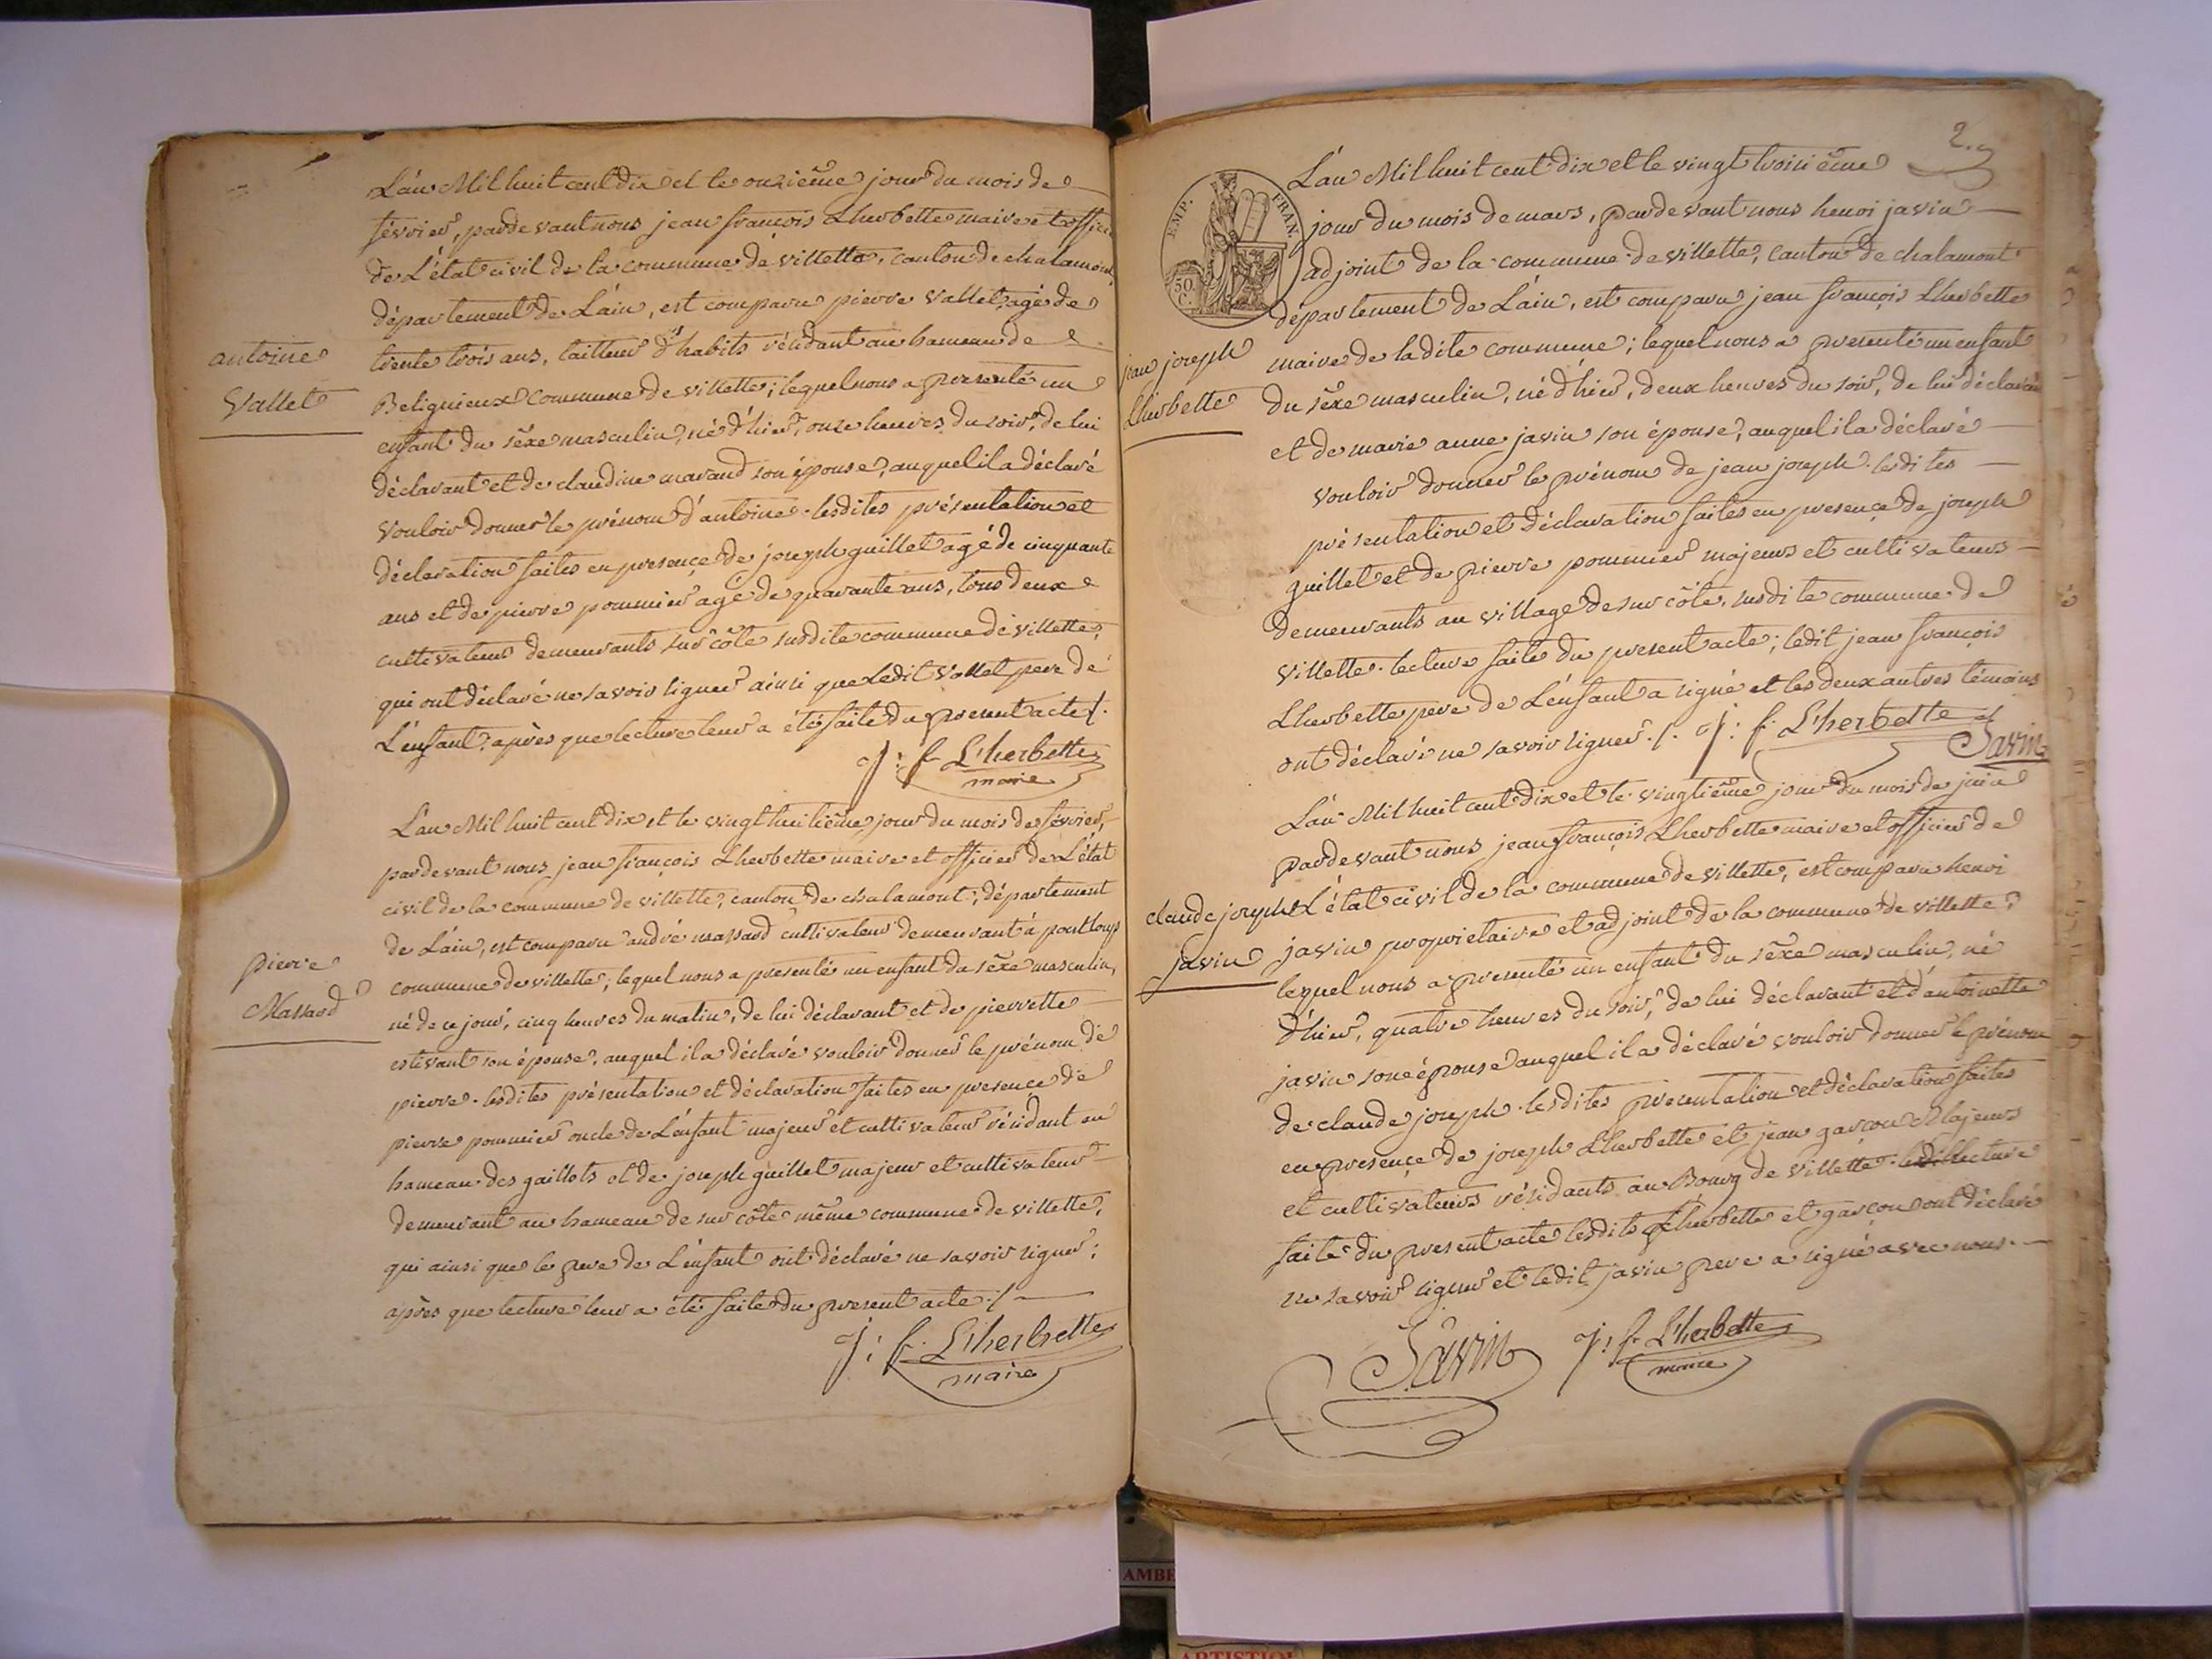 L'an Mil huit cent dix et le onzième jour du mois de
février, pardevant nous jean françois Lherbette maire et officier
de L'état civil de la commune de villette, canton de chalamont,
département de L'ain, est comparu pierre vallet, agé de
trente trois ans, tailleur d'habits résidant au hameau de
antoine
Vallet
Beligneux commune de villette; lequel nous a presenté un
enfant du séxe masculin, né d'hier, onze heures du soir, de lui
déclarant et de claudine marand son épouse, auquel il a déclaré
vouloir donner le prénom d'antoine. lesdites présentation et
déclaration faites en presence de joseph guillet agé de cinquante
ans et de pierre pommier agé de quarante ans, tous deux
cultivateurs demeurants sur côte susdite commune de villette,
qui ont déclaré ne savoir signer ainsi que Ledit vallet pere de
L'enfant, après que lecture leur a été faite du present acte ./.
j: f. L'herbette
maire
L'an Mil huit cent dix et le vingt huitième jour du mois de février,
pardevant nous jean françois Lherbette maire et officier de L'état
civil de la commune de villette, canton de chalamont, département
de L'ain, est comparu andré massard cultivateur demeurant à pont loup
pierre
Massard
commune de villette; lequel nous a presenté un enfant du séxe masculin,
né de ce jour, cinq heures du matin, de lui déclarant et de pierrette
estivant son épouse, auquel il a déclaré vouloir donner le prénom de
pierre. lesdites présentation et déclaration faites en presence de
pierre pommier oncle de L'enfant majeur et cultivateur résidant au
hameau des gaillots et de joseph guillet majeur et cultivateur
demeurant au hameau de sur côte même commune de villette,
qui ainsi que le pere de L'enfant ont déclaré ne savoir signer;
après que lecture leur a été faite du present acte ./.
j: f. L'herbette
maire
2.
EMP. FRAN.
50.
C.
L'an Mil huit cent dix et le vingt troisième
jour du mois de mars, pardevant nous henri javin
adjoint de la commune de villette, canton de chalamont
département de L'ain, est comparu jean françois Lherbette
jean joseph
Lherbette
maire de ladite commune; lequel nous a presenté un enfant
du séxe masculin, né d'hier, deux heures du soir, de lui déclarant
et de marie anne javin son épouse, auquel il a déclaré
vouloir donner le prénom de jean joseph. lesdites
présentation et déclaration faites en presence de joseph
guillet et de pierre pommier majeurs et cultivateurs
demeurants au village de sur côte, susdite commune de
villette. lecture faite du present acte; ledit jean françois
Lherbette pere de L'enfant a signé et les deux autres témoins
ont déclaré ne savoir signer ./. j: f. L'herbette
Javin
L'an Mil huit cent dix et le vingtième jour du mois de juin
pardevant nous jean françois Lherbette maire et officier de
claude joseph
javin
L'état civil de la commune de villette, est comparu henri
javin proprietaire et adjoint de la commune de villette,
lequel nous a presenté un enfant du séxe masculin, né
d'hier, quatre heures du soir, de lui déclarant et d'antoinette
javin son épouse auquel il a déclaré vouloir donner le prénom
de claude joseph. lesdites presentation et déclaration faites
en presence de joseph Lherbette et jean garçon Majeurs
et cultivateurs résidants au Bourg de villette. lecture
faite du present acte lesdits Lherbette et garçon ont déclaré
ne savoir signer et ledit javin pere a signé avec nous.
Javin j: f. L'herbette
maire
AMBE
ARTISTIQU